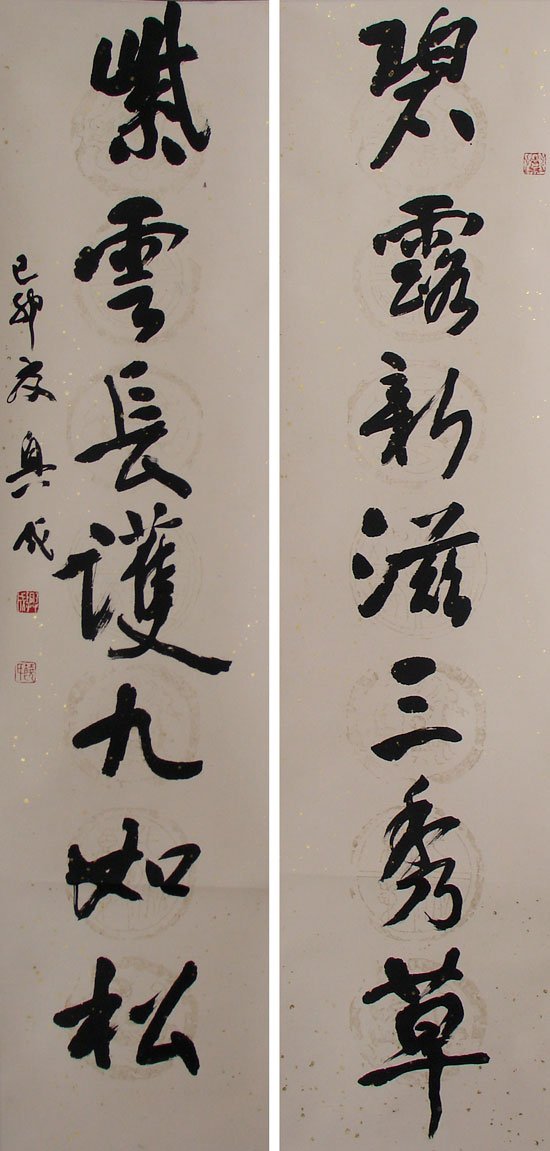 碧露新滋三秀草
紫雲長護九如松
己卯夏興成